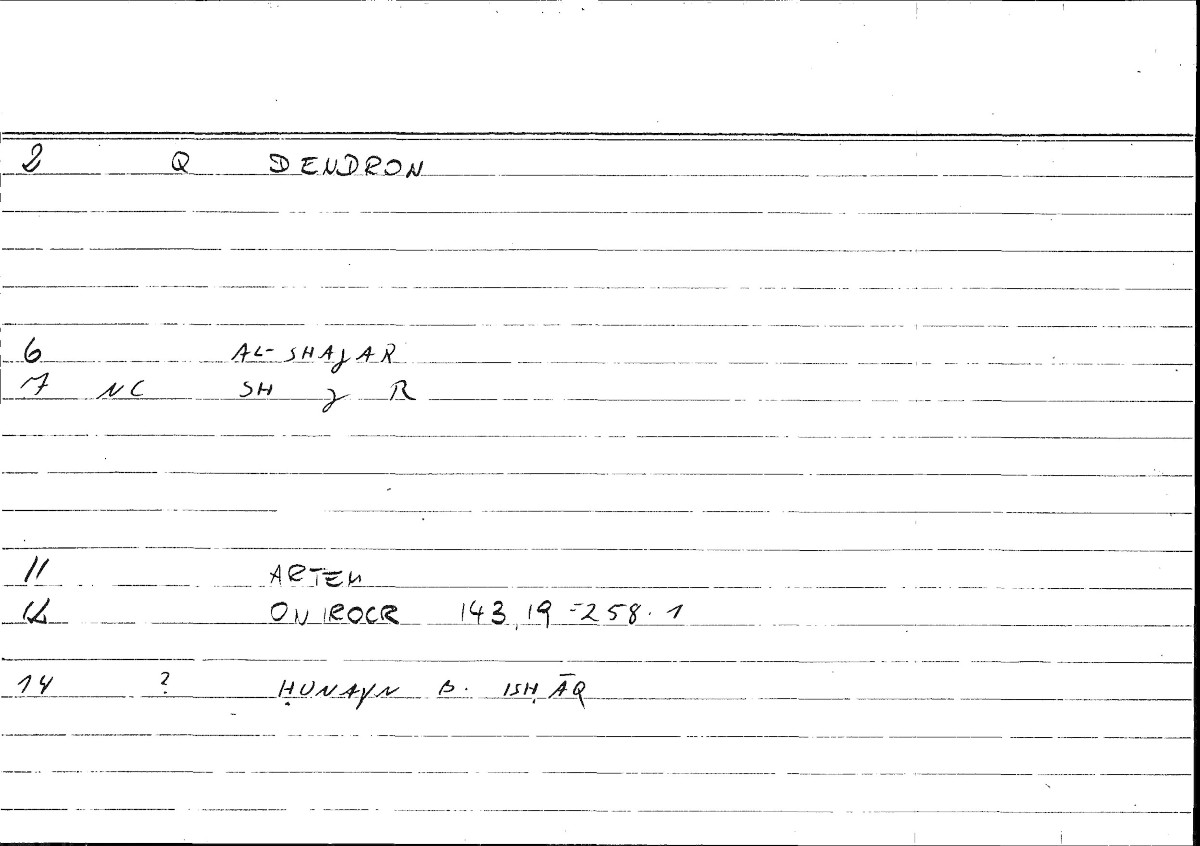 2 Q DENDRON
6 AL-SHAJAR
7 NC SH J R
11 ARTEM
12 ONIROCR 143,19-258.1
14 ? ḤUNAYN B. ISḤĀQ